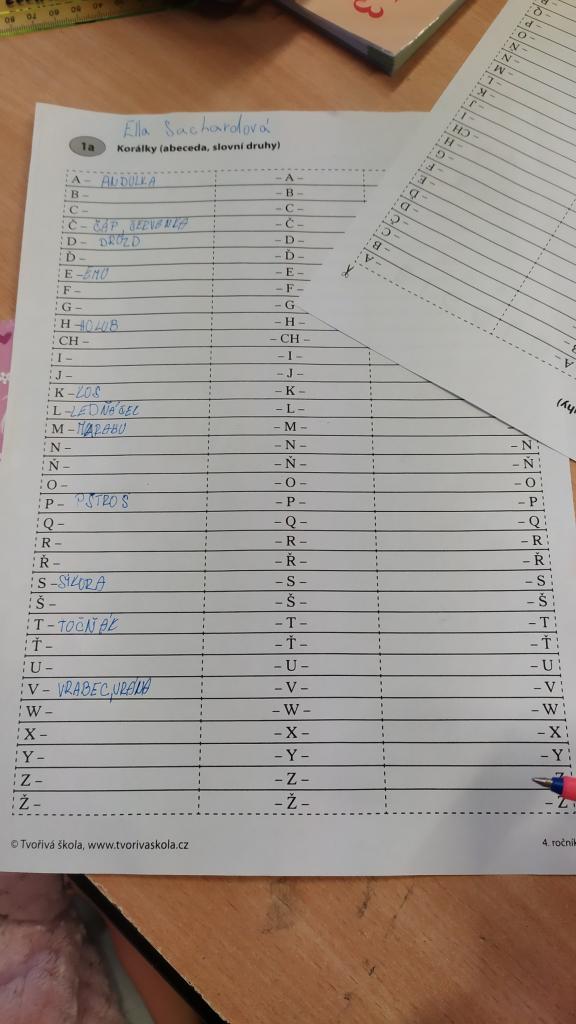 Ella Sachardová
1a Korálky (abeceda, slovní druhy)
A – ANDULKA – A –
B – – B –
C – – C –
Č – ČÁP, ČERVENKA – Č –
D – DROZD – D –
Ď – – Ď –
E – EMU – E –
F – – F –
G – – G
H – HOLUB – H –
CH – – CH –
I – – I –
J – – J –
K – KOS – K –
L – LEDŇÁČEK – L –
M – MARABU – M –
N – – N – – N
Ň – – Ň – – Ň
O – – O – – O
P – PŠTROS – P – – P
Q – – Q – – Q
R – – R – – R
Ř – – Ř – – Ř
S – SÍKORA – S – – S
Š – – Š – – Š
T – TOČŇÁK – T – – T
Ť – – Ť – – Ť
U – – U – – U
V – VRABEC, VRÁNA – V – – V
W – – W – – W
X – – X – – X
Y – – Y – – Y
Z – – Z – Z
Ž – – Ž – – Ž
© Tvořivá škola, www.tvorivaskola.cz
4. ročník
A –
B –
C –
Č –
D –
Ď –
E –
F –
G –
H –
CH –
I –
J –
K –
L –
M –
N –
Ň –
O –
P –
Q –